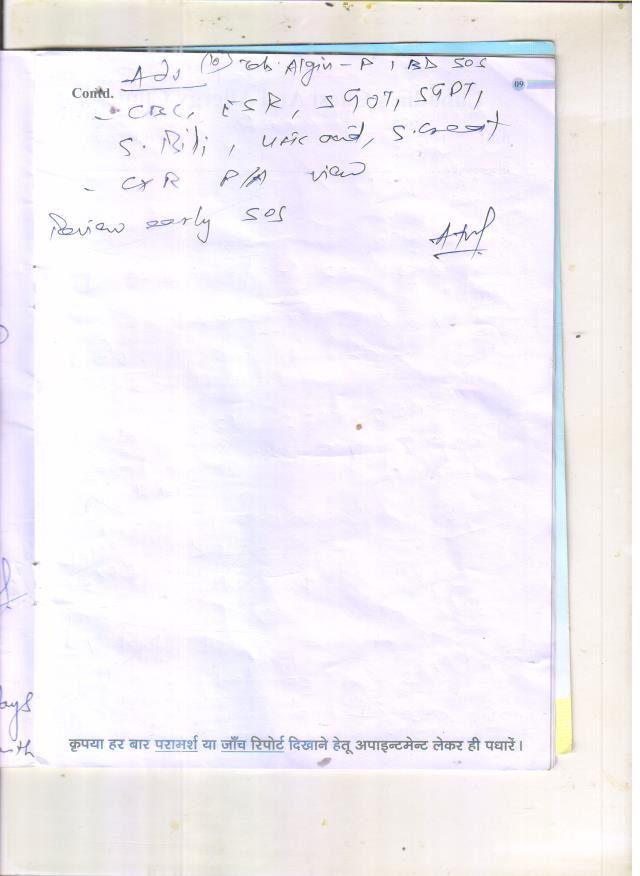 Adv (10) Tab. Algin-P 1 BD SOS
Contd. 09
- CBC, ESR, SGOT, SGPT,
S. Bili, Uric acid, S. Creat
- CXR P/A view
Review early SOS
ays
कृपया हर बार परामर्श या जाँच रिपोर्ट दिखाने हेतू अपाइन्टमेन्ट लेकर ही पधारें।